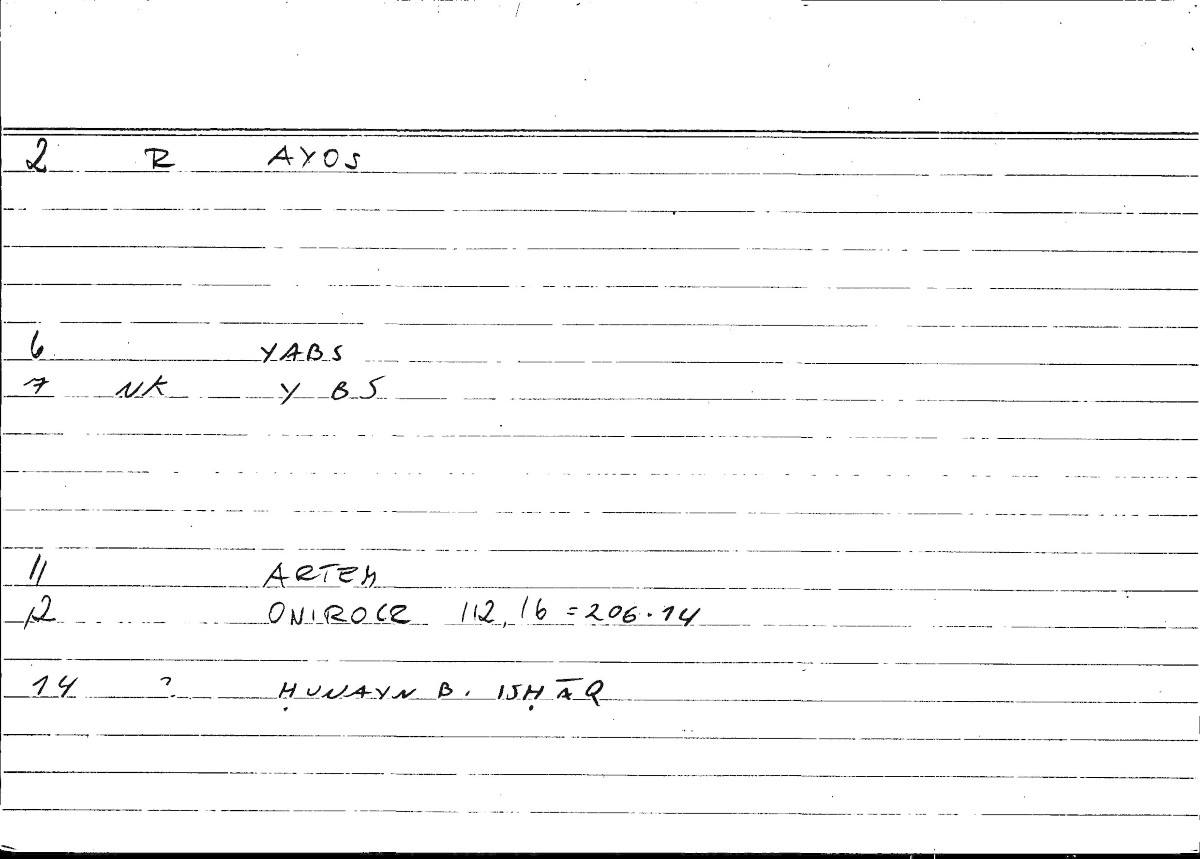 2 R AYOS
6 YABS
7 NK Y BS
11 ARTEM
12 ONIROCR 112, 16 = 206.14
14 ? ḤUNAYN B. ISḤĀQ